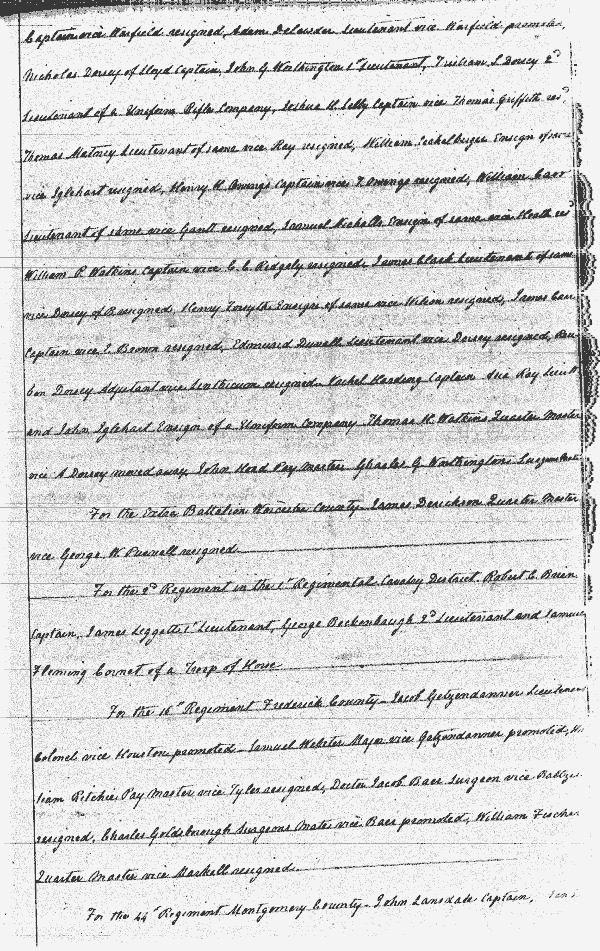 Captain vice Warfield resigned, Adam Delawder Lieutenant vice Warfield promoted,
Nicholas Dorsey of Lloyd Captain, John G Worthington 1st Lieutenant, William L Dorsey 2d
Lieutenant of a Uniform Rifle Company, Joshua W. Selby Captain vice Thomas Griffith
Thomas Matney Lieutenant of same vice Ray resigned, William Ensign of
vice Iglehart resigned, Henry H Owings Captain vice T. Owings resigned, William Carr
Lieutenant of same vice Gantt resigned, Samuel Nicholls Ensign of same vice Heath
William P. Watkins Captain vice C. C. Ridgely resigned James Clark Lieutenant of same
vice Dorsey of B resigned, Henry Forsyth Ensign of same vice Wilson resigned, James
Captain vice E Brown resigned, Edmund Duvall Lieutenant vice Dorsey resigned, Reu
ben Dorsey Adjutant vice Linthicum resigned Vachel Harding Captain Asa Ray Lieut
and John Iglehart Ensign of a Uniform Company Thomas H. Watkins Quarter Master
vice A Dorsey moved away John Hood Pay Master Charles G Worthington Surgeons
For the Extra Battalion Worcester County James Derickson Quarter Master
vice George W Purnell resigned
For the 2d Regiment in the 1st Regimental Cavalry District. Robert C. Brien
Captain, James Leggett 1st Lieutenant, George Beckenbaugh 2d Lieutenant and Samuel
Fleming Cornet of a Troop of Horse
For the 16th Regiment Frederick County Jacob Getzendanner Lieutenant
Colonel vice Houston promoted Samuel Webster Major vice Getzendanner promoted,
liam Ritchie Pay Master vice Tyler resigned, Doctor Jacob Baer Surgeon vice
resigned, Charles Goldsborough Surgeons Mate vice Baer promoted, William Fischer
Quarter Master vice Markell resigned.
For the 44th Regiment Montgomery County John Lansdale Captain,